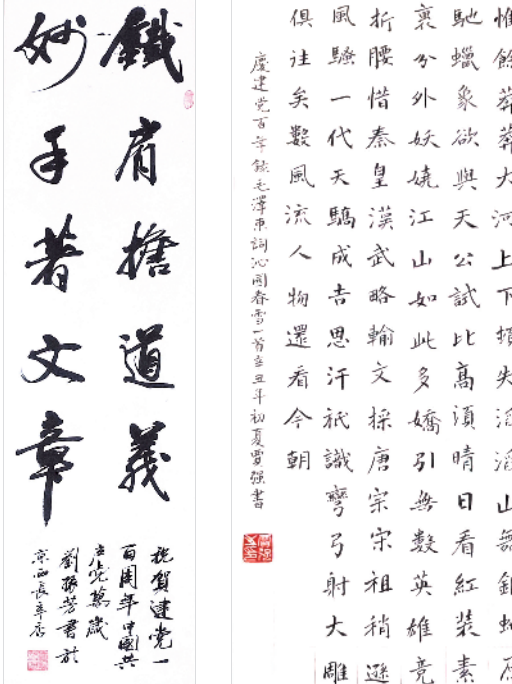 鐵肩擔道義
妙手著文章
祝賀建党一
百周年中國共
产党萬歲
劉振芳書於
京西長辛店
惟餘莽莽大河上下頓失滔滔山舞銀蛇原
馳蠟象欲與天公試比高須晴日看紅装素
裹分外妖嬈江山如此多嬌引無數英雄竞
折腰惜秦皇漢武略輸文採唐宗宋祖稍遜
風騷一代天驕成吉思汗衹識彎弓射大雕
俱往矣數風流人物還看今朝
慶建党百年錄毛澤東詞沁園春雪一首辛丑年初夏賈强書